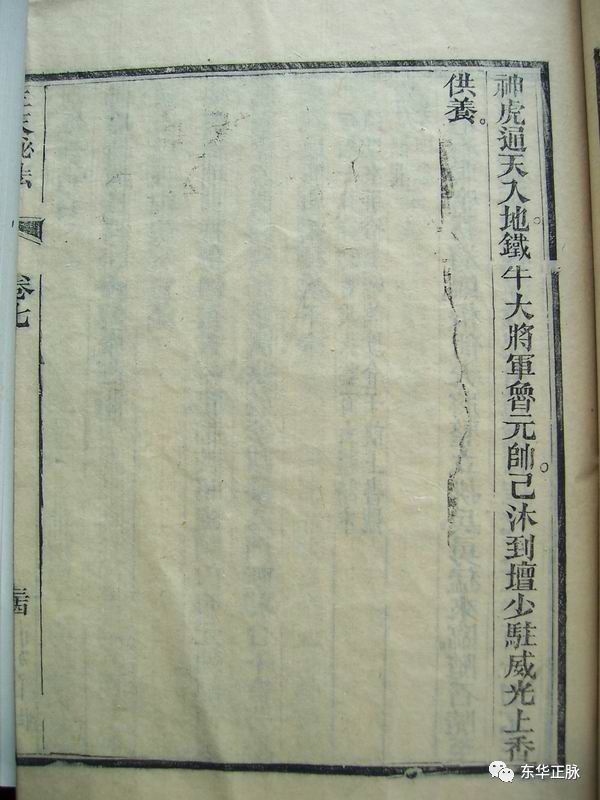 神虎逥天入地。鐵牛大將軍魯元帥。己沐到壇少駐威光上香
供養。
秘法
卷七
东华正脉